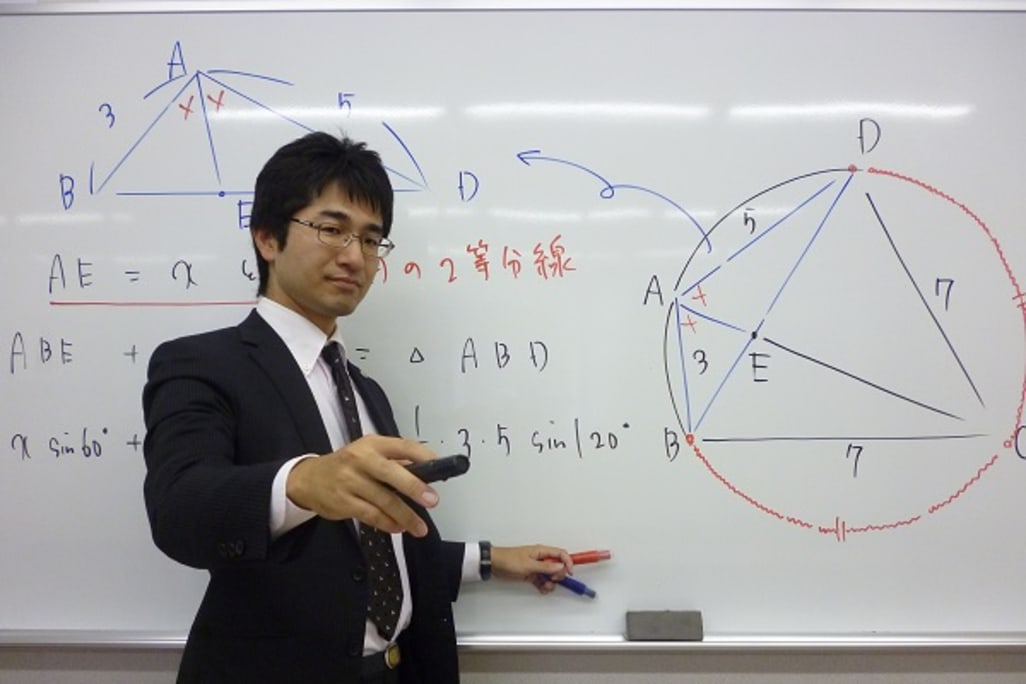 A
3
5
B
E
D
AE = x
の2等分線
ABE +
= △ABD
x sin60° +
・3・5 sin120°
D
5
A
7
3
E
B
7
C